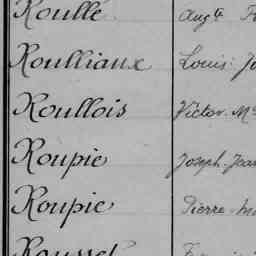 Roullé Augte
Roulliaux Louis
Roullois Victor
Roupie Joseph
Roupie Pierre
Rousset